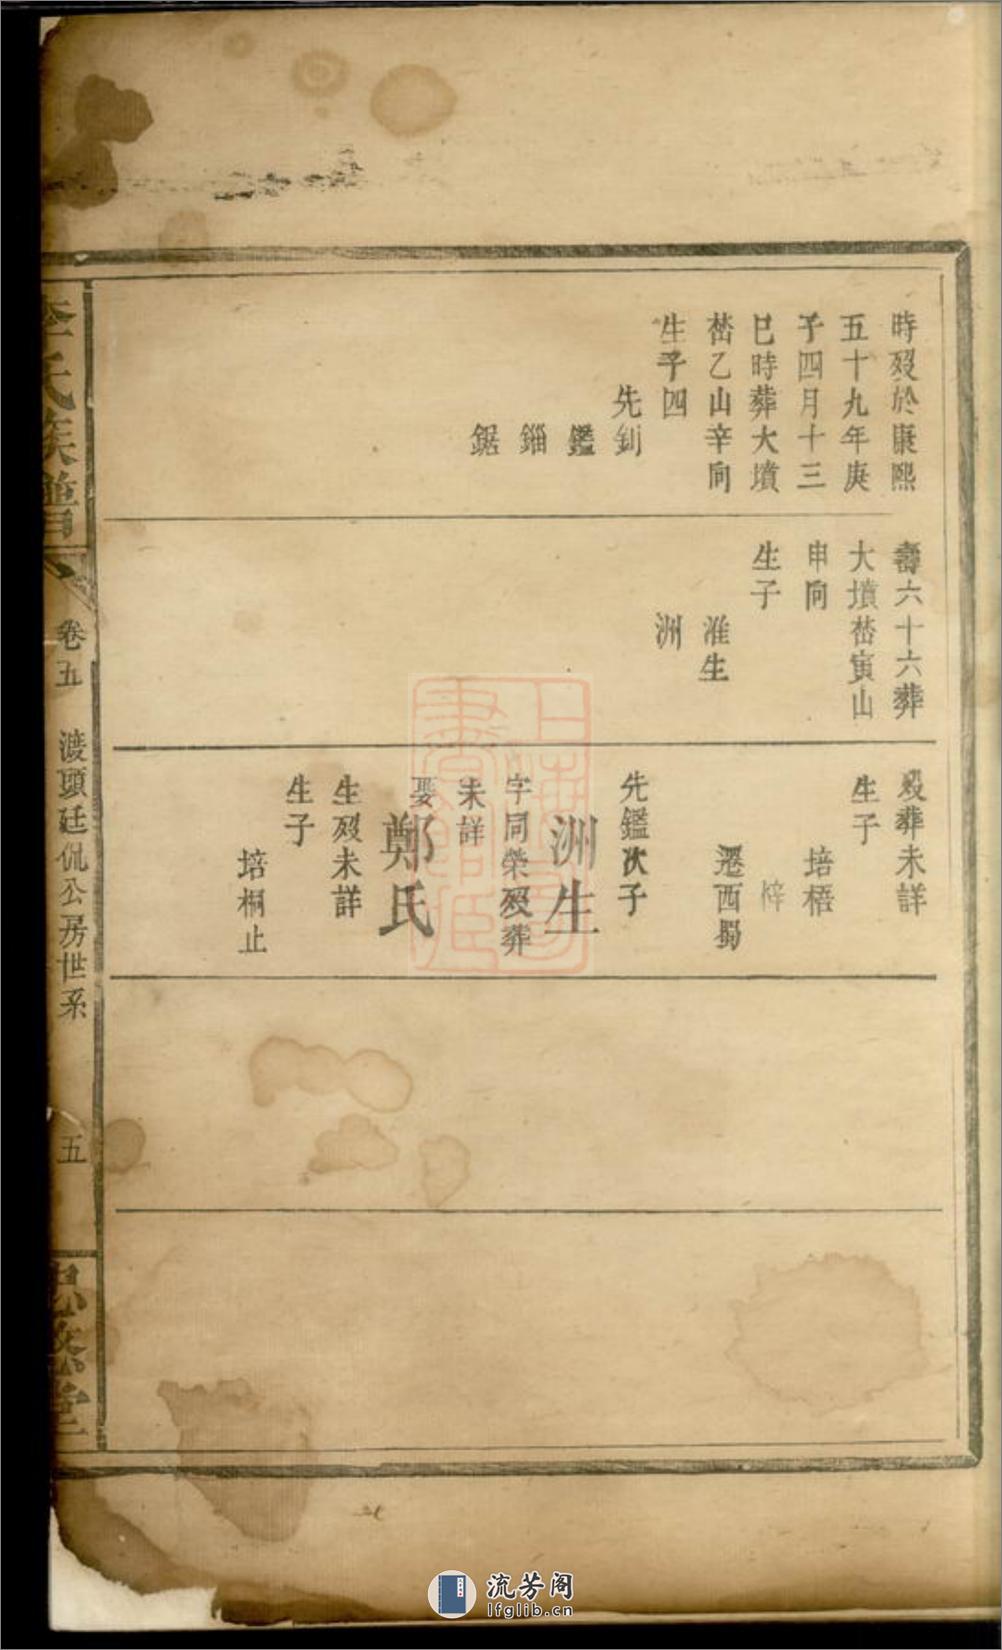 時歿於康熙
五十九年庚
子四月十三
巳時葬大墳
嵆乙山辛向
生子四
先釗
鑑
錙
鋸
壽六十六葬
大墳嵆寅山
申向
生子
淮生
洲
歿葬未詳
生子
培梧
梓
遷西蜀
先鑑次子
洲生
字同榮歿葬
未詳
娶鄭氏
生歿未詳
生子
培桐止
李氏族譜
卷五
渡頭廷侃公房世系
五
堂
上海圖書館藏
流芳阁
lfglib.cn